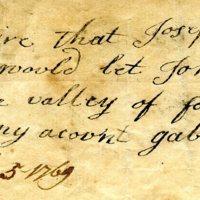 ire that Josep
woold let Jon
e valley of fo
my acovnt gab
5-1769